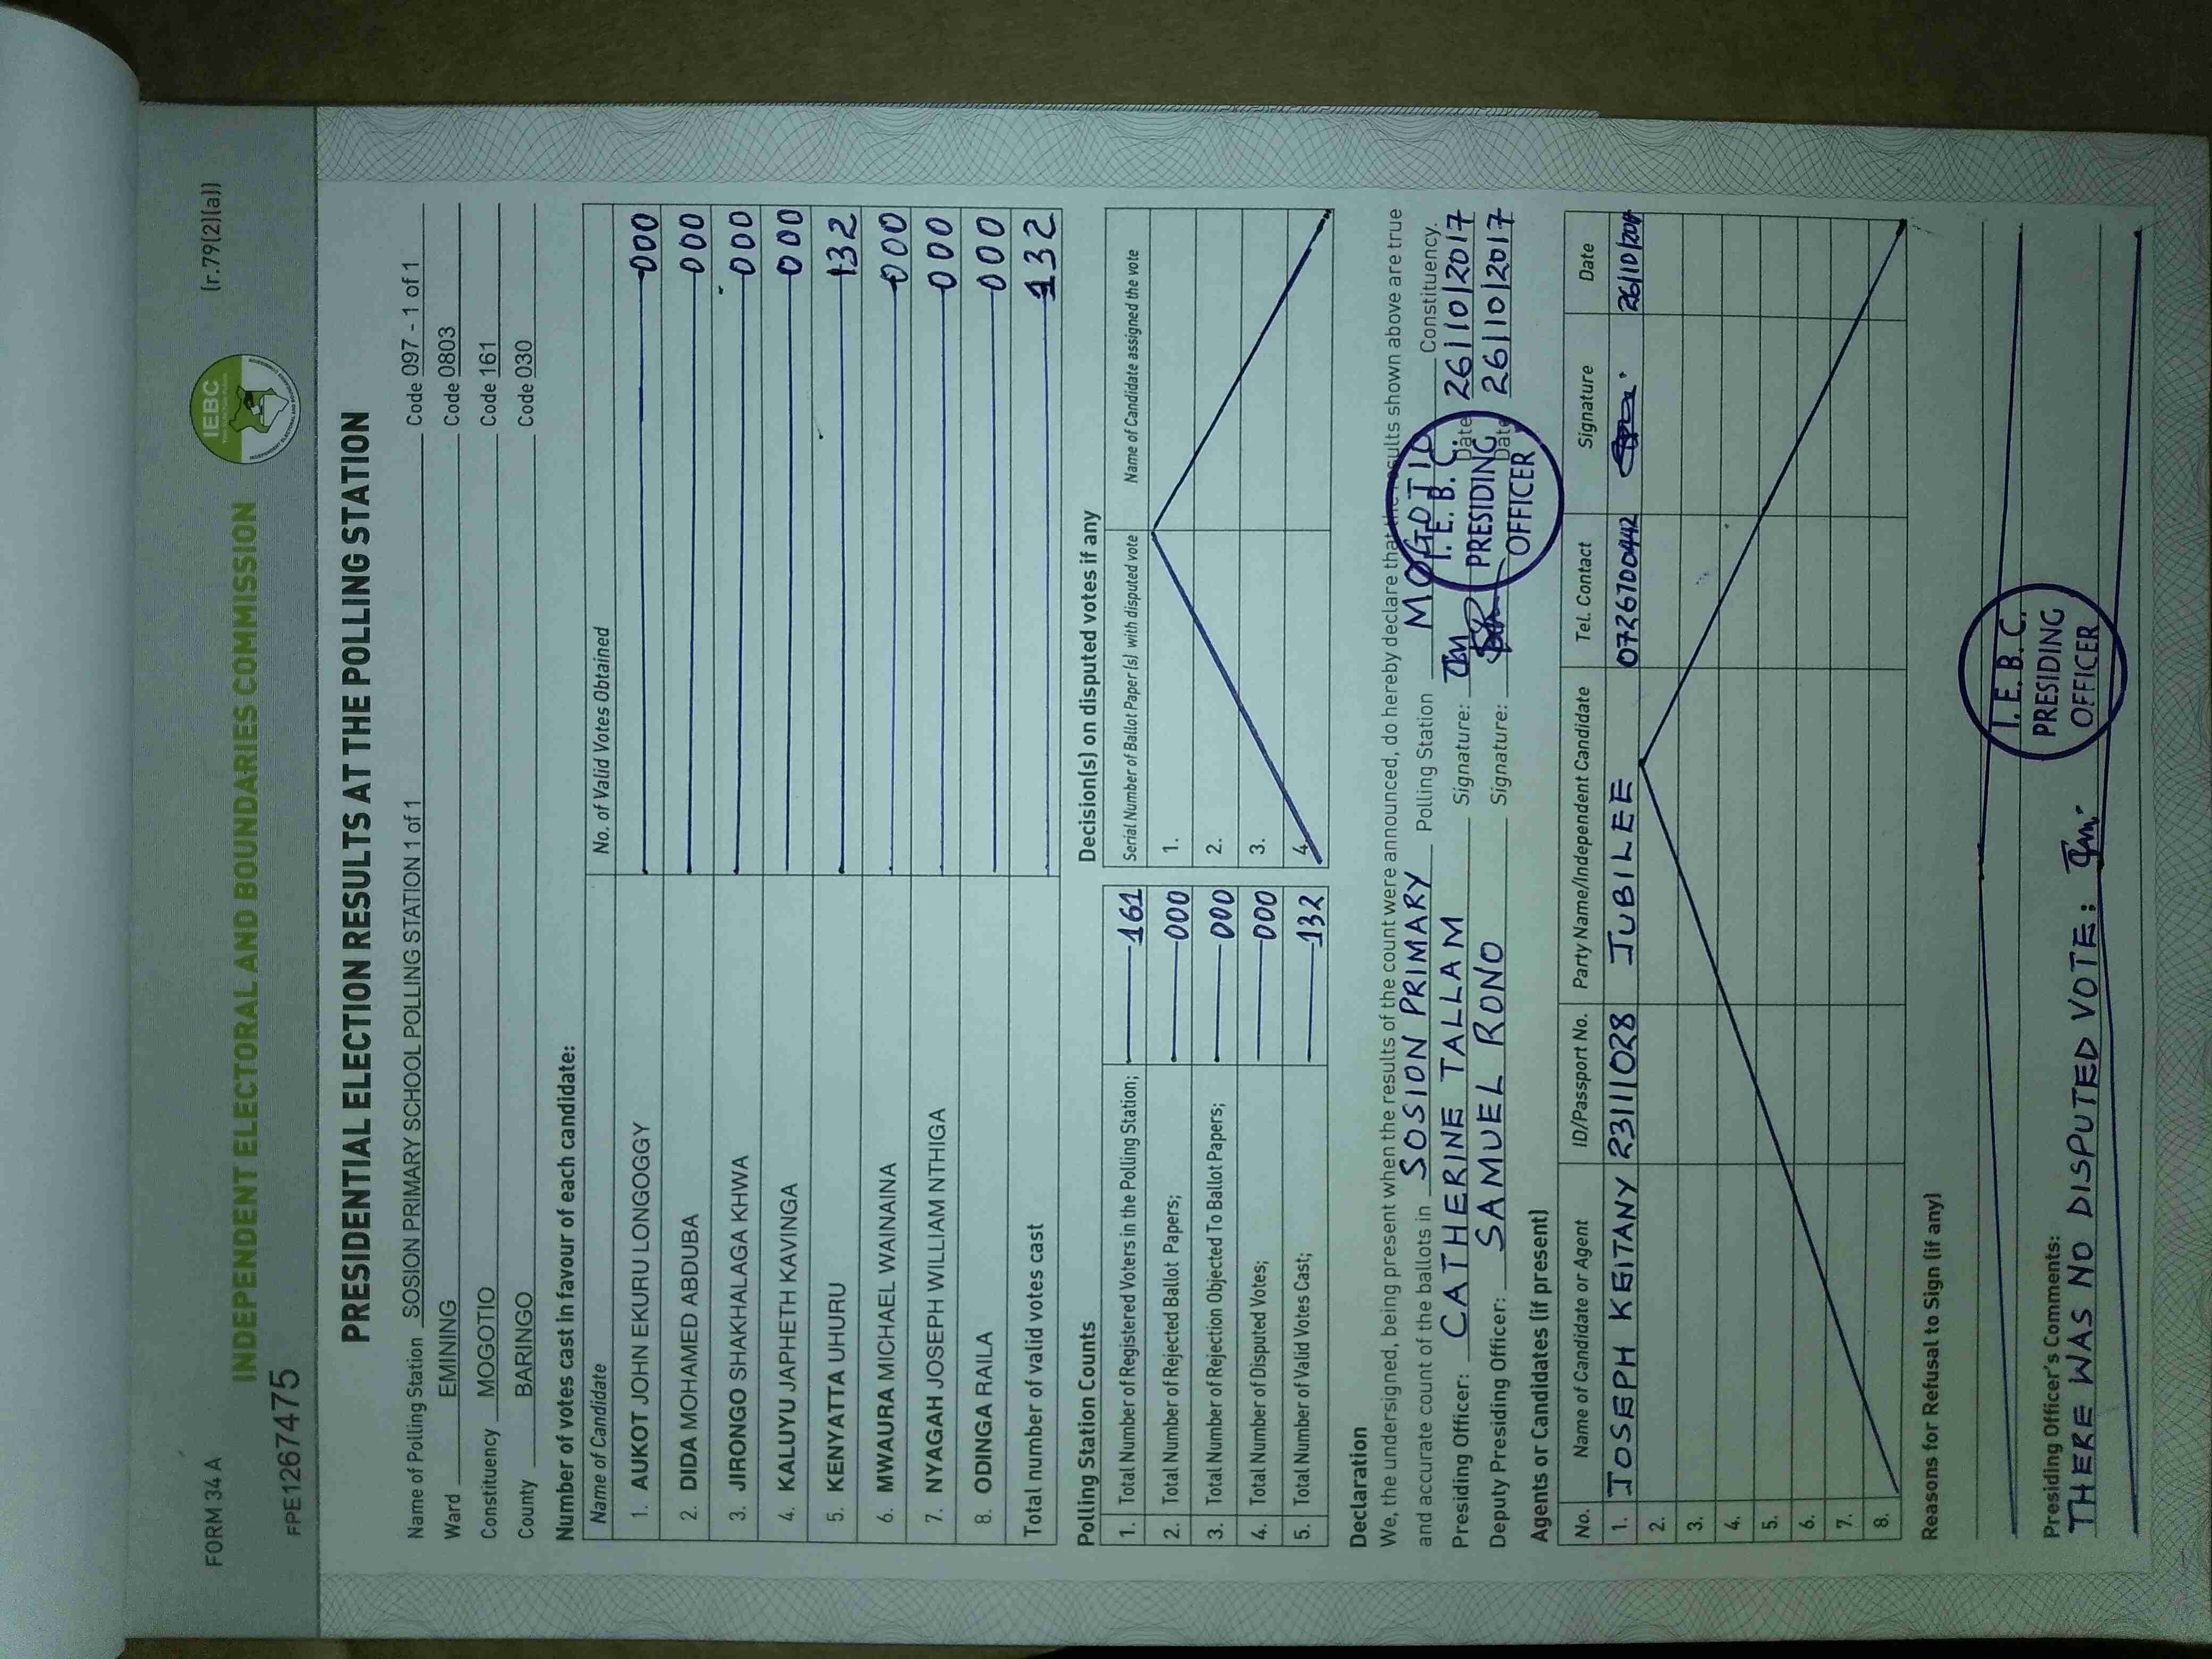 FORM 34 A
(r.79(2)(a))
IEBC
INDEPENDENT ELECTORAL AND BOUNDARIES COMMISSION
FPE1267475
PRESIDENTIAL ELECTION RESULTS AT THE POLLING STATION
Name of Polling Station SOSION PRIMARY SCHOOL POLLING STATION 1 of 1 Code 097 - 1 of 1
Ward EMINING Code 0803
Constituency MOGOTIO Code 161
County BARINGO Code 030
Number of votes cast in favour of each candidate:
Name of Candidate No. of Valid Votes Obtained
1. AUKOT JOHN EKURU LONGOGGY 000
2. DIDA MOHAMED ABDUBA 000
3. JIRONGO SHAKHALAGA KHWA 000
4. KALUYU JAPHETH KAVINGA 000
5. KENYATTA UHURU 132
6. MWAURA MICHAEL WAINAINA 000
7. NYAGAH JOSEPH WILLIAM NTHIGA 000
8. ODINGA RAILA 000
Total number of valid votes cast 132
Polling Station Counts
1. Total Number of Registered Voters in the Polling Station; 161
2. Total Number of Rejected Ballot Papers; 000
3. Total Number of Rejection Objected To Ballot Papers; 000
4. Total Number of Disputed Votes; 000
5. Total Number of Valid Votes Cast; 132
Decision(s) on disputed votes if any
Serial Number of Ballot Paper (s) with disputed vote Name of Candidate assigned the vote
1.
2.
3.
4.
Declaration
We, the undersigned, being present when the results of the count were announced, do hereby declare that the results shown above are true
and accurate count of the ballots in SOSION PRIMARY Polling Station MOGOTIO Constituency.
Presiding Officer: CATHERINE TALLAM Signature: Date 26/10/2017
Deputy Presiding Officer: SAMUEL RONO Signature: Date 26/10/2017
I.E.B.C.
PRESIDING
OFFICER
Agents or Candidates (if present)
No. Name of Candidate or Agent ID/Passport No. Party Name/Independent Candidate Tel. Contact Signature Date
1. JOSEPH KEITANY 23111028 JUBILEE 0726700442 26/10/2017
2.
3.
4.
5.
6.
7.
8.
Reasons for Refusal to Sign (if any)
I.E.B.C.
PRESIDING
OFFICER
Presiding Officer's Comments:
THERE WAS NO DISPUTED VOTE: